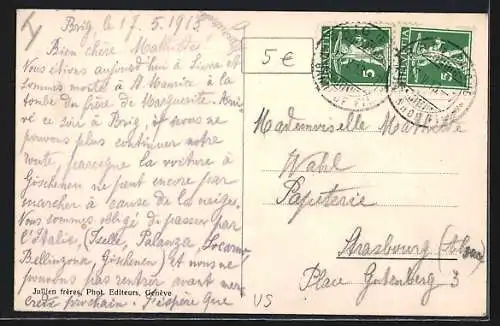 Brig, le 17. 5. 1913.
Bien chère Mathilde
Nous étions aujourd'hui à Sierre et
sommes monté à St. Maurice à la
tombe du frère de Marguerite. Arri-
vé ce soir à Brig, nous ne
pouvons plus continuer notre
route, parceque la voiture à
Göschenen ne peut encore pas
marcher à cause de la neige.
Nous sommes obligé de passer par
l'Italie, (Iselle, Palanza, Locarno,
Bellinzona, Göschenen) et nous ne
pouvons pas rentrer avant mer-
credi prochain. J'espère que
Jullien frères, Phot. Editeurs, Genève
5 €
HELVETIA 5
HELVETIA 5
Mademoiselle Mathilde
Wahl
Papeterie
Strasbourg (Alsace)
Place Gutenberg 3
VS